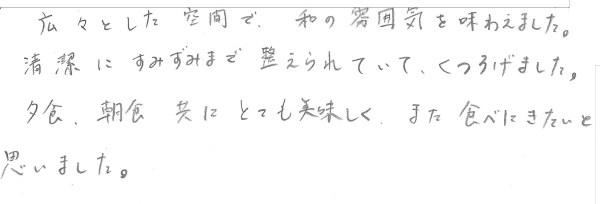 広々とした空間で、和の雰囲気を味わえました。
清潔にすみずみまで整えられていて、くつろげました。
夕食、朝食共にとても美味しく、また食べにきたいと
思いました。